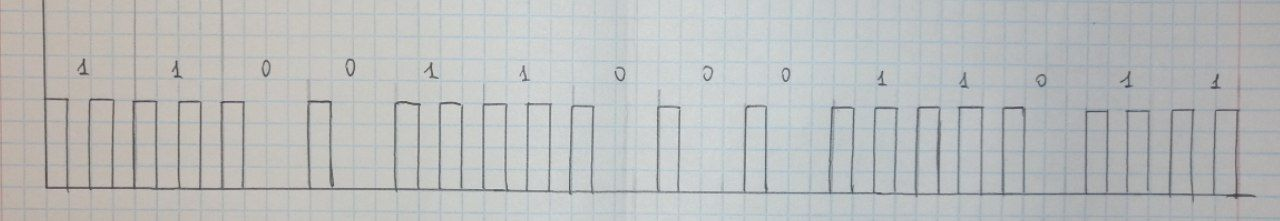 1 1 0 0 1 1 0 0 0 1 1 0 1 1